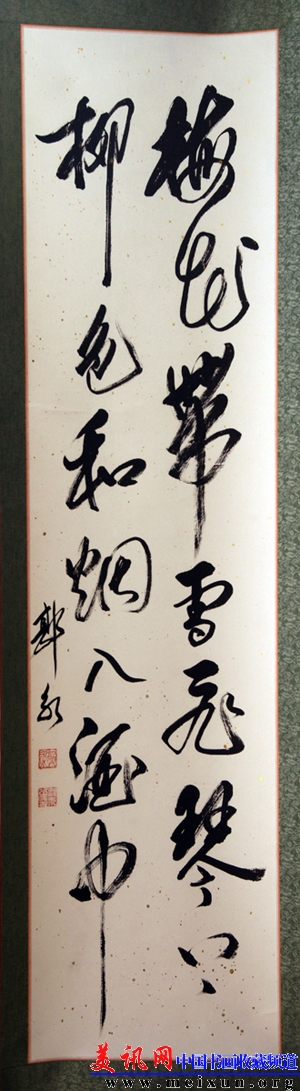 梅花带雪飞琴上
柳色和烟入酒中
美讯网
中国书画收藏频道
www.meixun.org